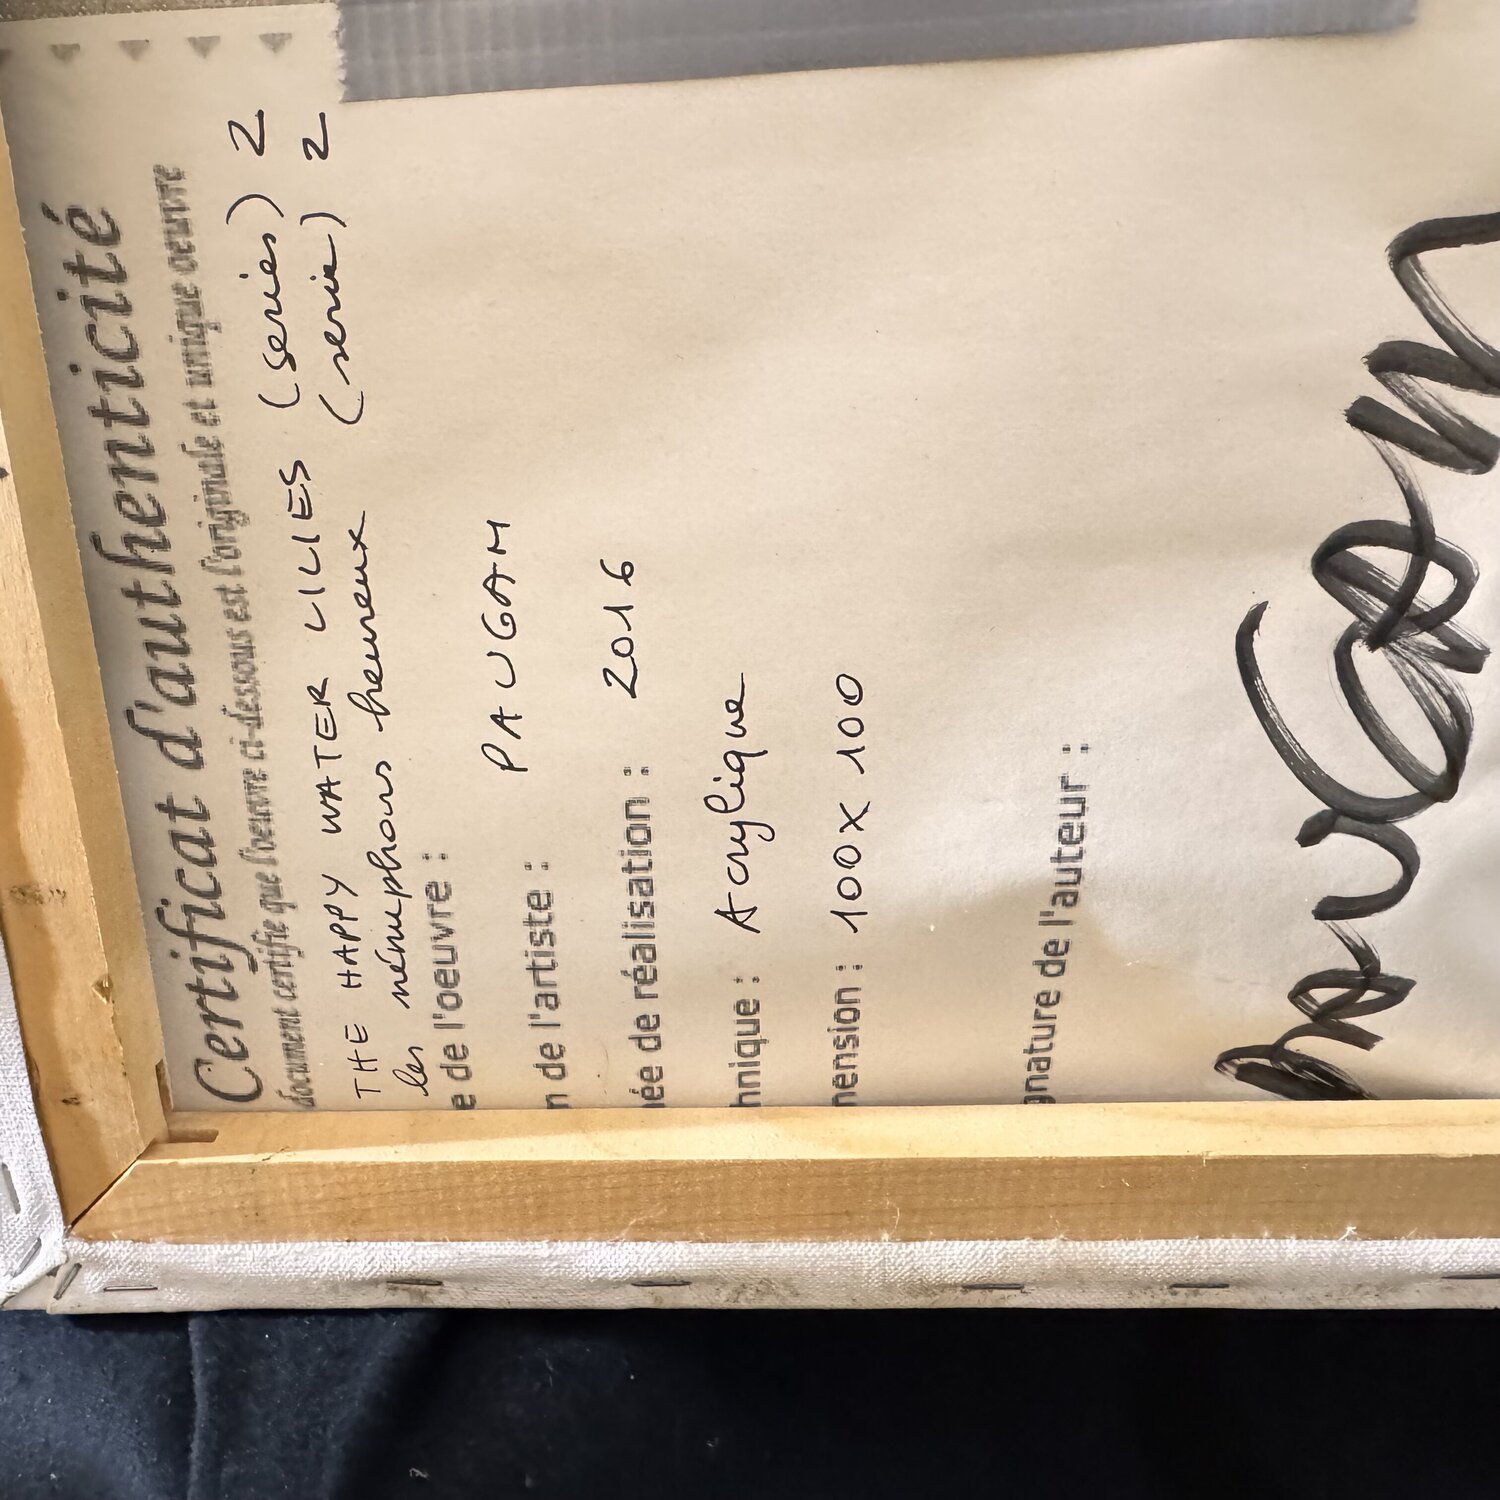 Certificat d'authenticité
document certifie que l'oeuvre ci-dessous est l'originale et unique oeuvre
THE HAPPY WATER LILIES (series) 2
les nénuphars heureux (serie) 2
e de l'oeuvre :
n de l'artiste : PAUGAM
née de réalisation : 2016
hnique : Acrylique
mension : 100 x 100
gnature de l'auteur :